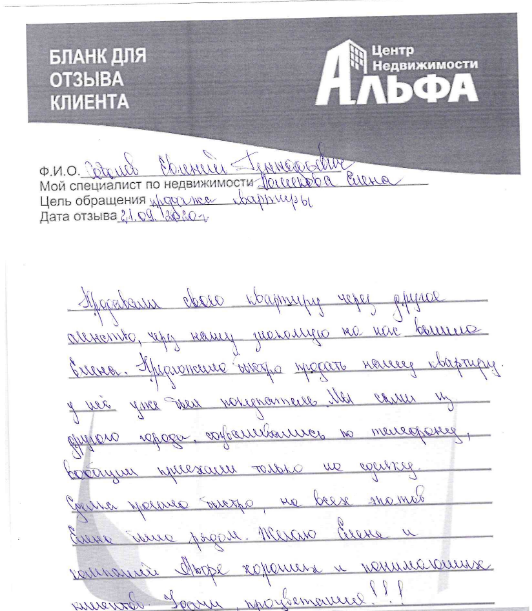 БЛАНК ДЛЯ
ОТЗЫВА
КЛИЕНТА
Центр
Недвижимости
АЛЬФА
Ф.И.О. Евгений Геннадьевич
Мой специалист по недвижимости Елена
Цель обращения продажа квартиры
Дата отзыва 21.09.2020г
Продавали свою квартиру через другое
агенство, через нашу знакомую на нас вышла
Елена. Предложила быстро продать нашу квартиру.
у неё уже был покупатель. Мы сами из
другого города, созванивались по телефону,
вобщем приехали только на сделку.
Сделка прошла быстро, на всех этапах
Елена была рядом. Желаю Елене и
компании Альфа хороших и понимающих
клиентов. Удачи, процветания!!!